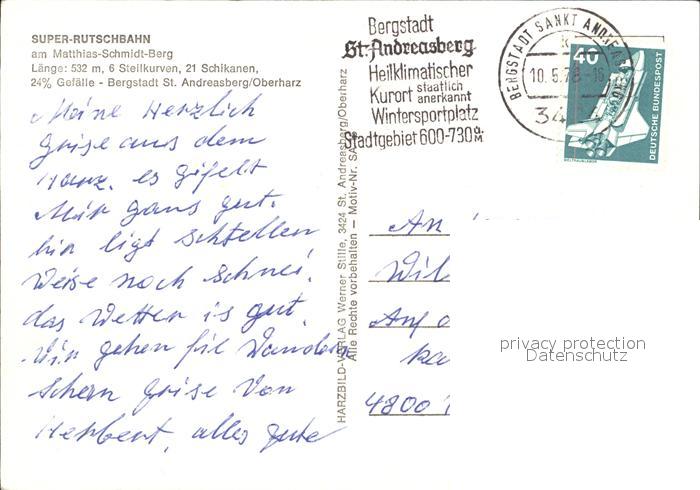 SUPER-RUTSCHBAHN
am Matthias-Schmidt-Berg
Länge: 532 m, 6 Steilkurven, 21 Schikanen,
24% Gefälle - Bergstadt St. Andreasberg/Oberharz
Meine Herzlich
Grise aus dem
Harz. es gifelt
Mir gans gut.
hir ligt schtellen
Weise noch schnei.
das Wetter is gut.
Wir gehen fil Wandern
Schern Grise Von
Herbert, alles gute
HARZBILD-VERLAG Werner Stille, 3424 St. Andreasberg/Oberharz
Alle Rechte vorbehalten — Motiv-Nr.
Bergstadt
St. Andreasberg
Heilklimatischer
Kurort staatlich anerkannt
Wintersportplatz
Stadtgebiet 600-730 ü. M
BERGSTADT SANKT ANDREASBERG
10.5.78-16
40
DEUTSCHE BUNDESPOST
WELTRAUMLABOR
An
Wil
Auf
ka
4800
privacy protection
Datenschutz